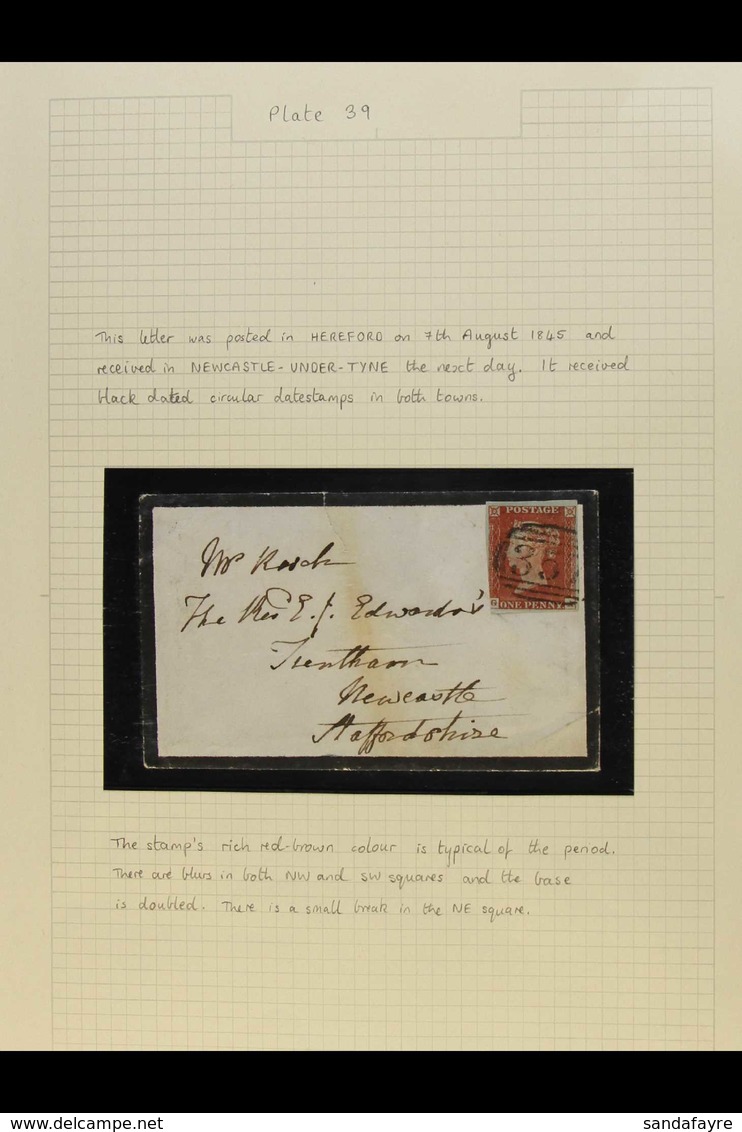 Plate 39
This letter was posted in HEREFORD on 7th August 1845 and
received in NEWCASTLE-UNDER-TYNE the next day. It received
black dated circular datestamps in both towns.
POSTAGE
35
ONE PENNY
Mr Roach
The Rev E. J. Edwards's
Trentham
Newcastle
Staffordshire
The stamp's rich red-brown colour is typical of the period.
There are blurs in both NW and SW squares and the base
is doubled. There is a small break in the NE square.
View more on our website
sandafayre